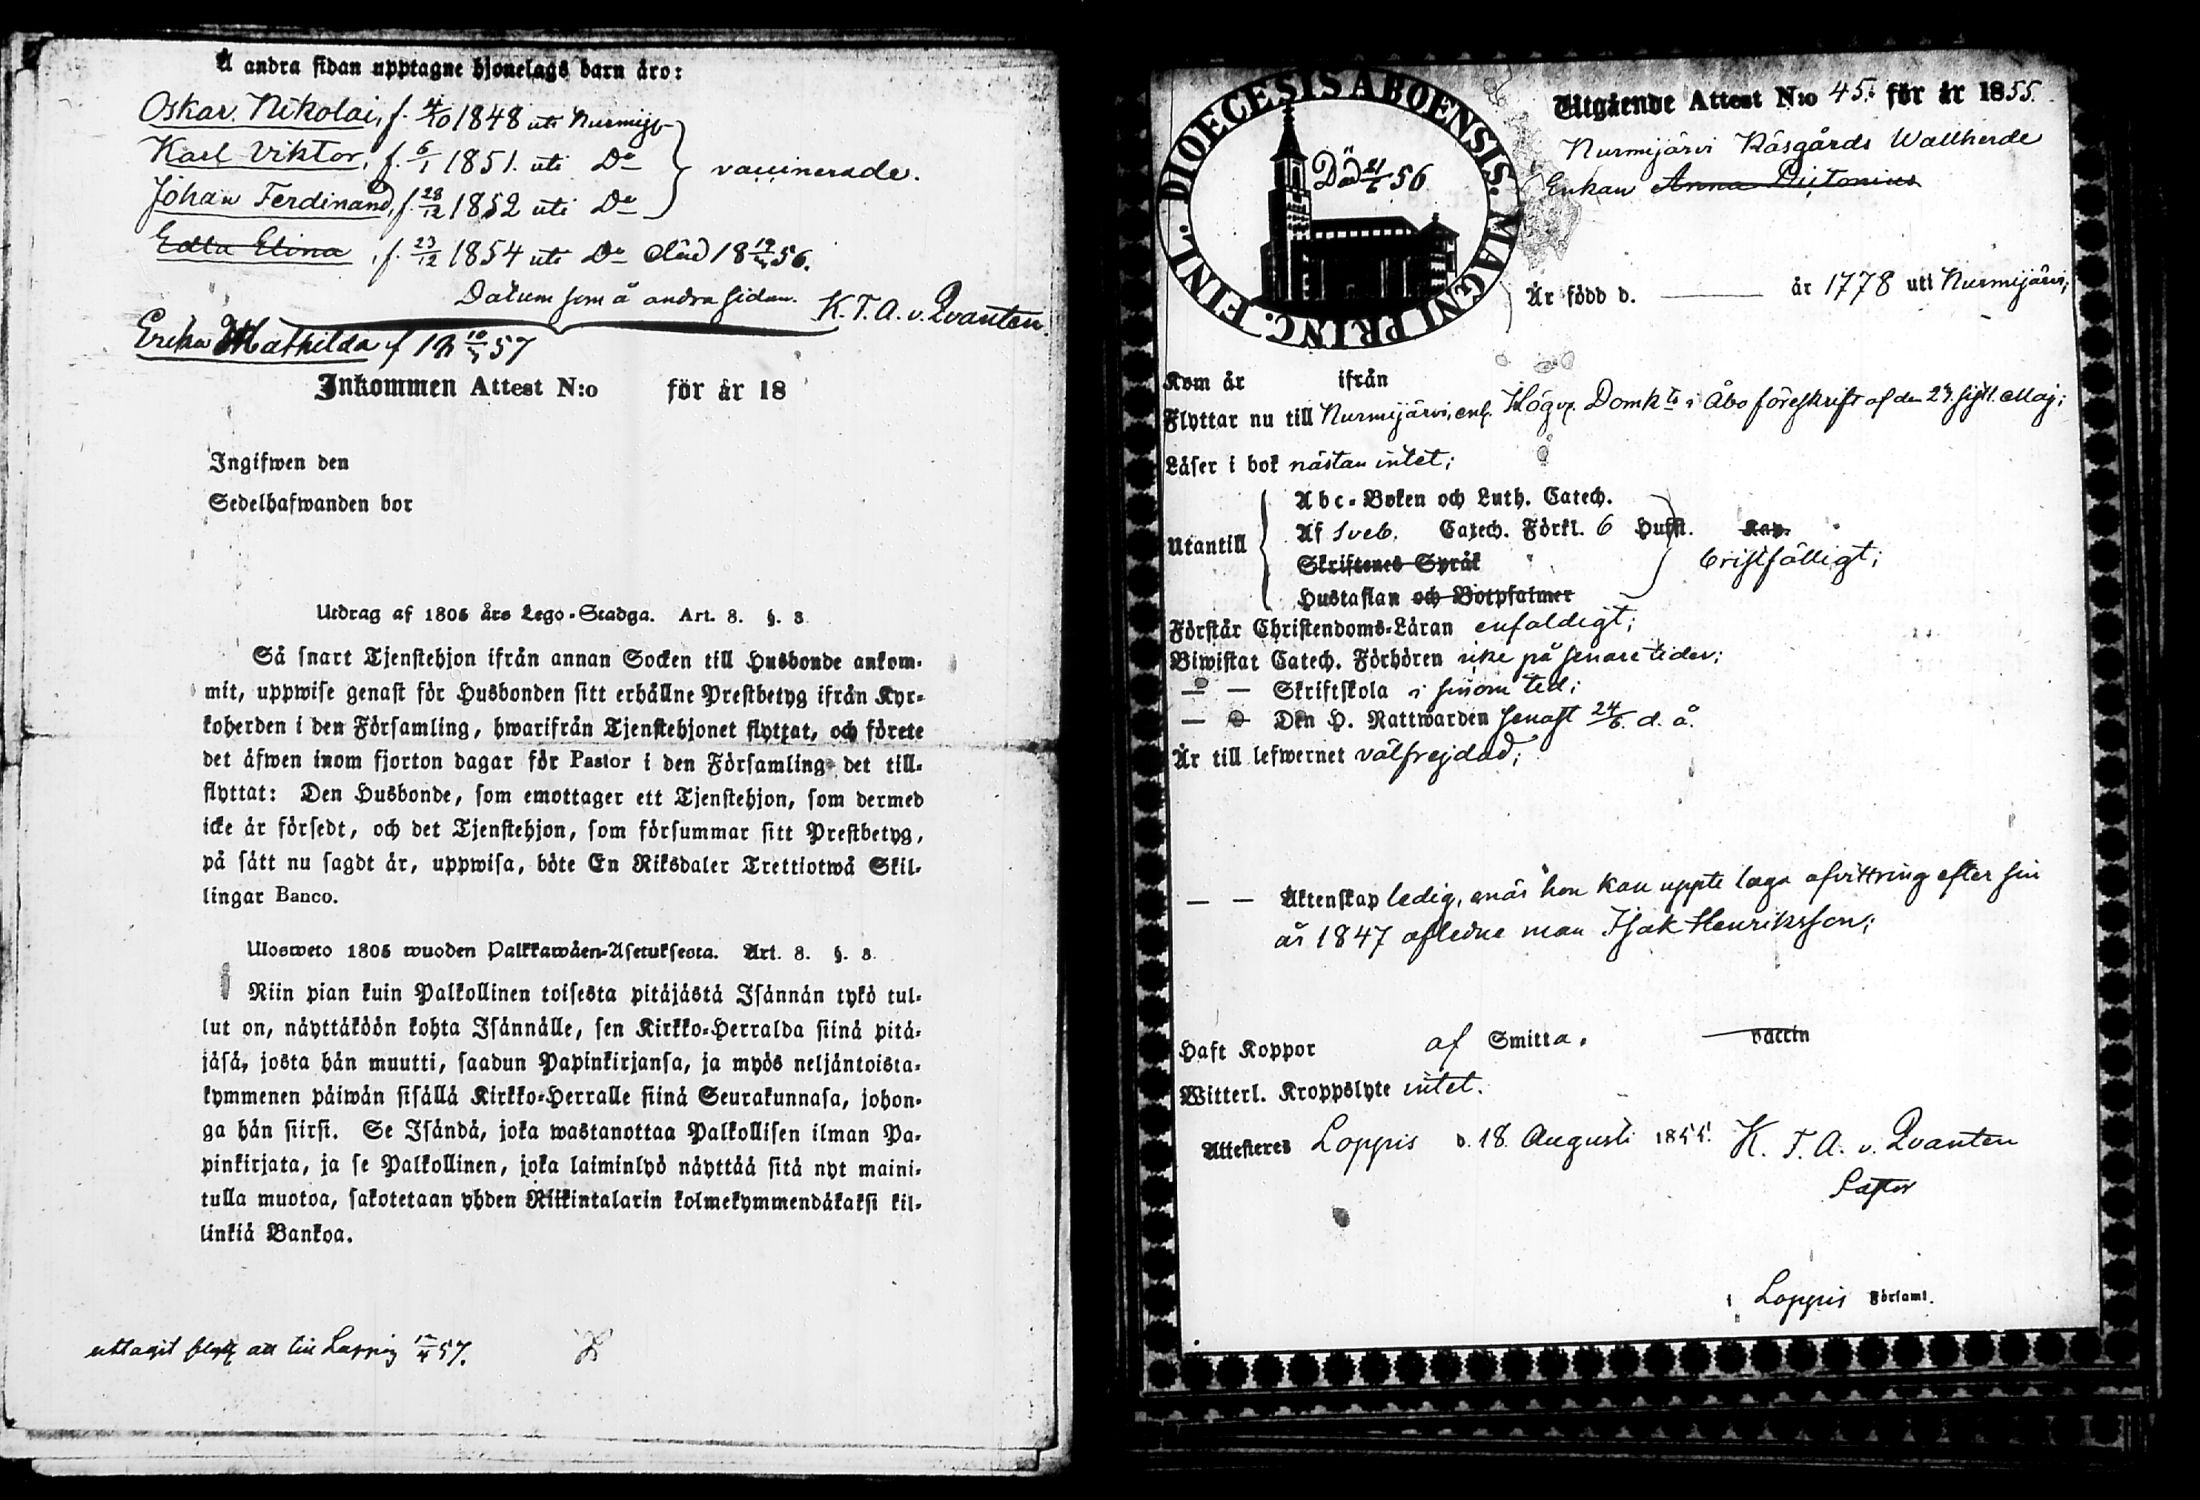 Å andra sidan upptagne hjonelags barn äro:
Oskar Nikolai, f. 4/10 1848 uti Nurmijj.
Karl Viktor, f. 6/1 1851. uti Do
vaccinerade.
Johan Ferdinand, f. 28/12 1852 uti Do
Edla Elina, f. 23/12 1854 uti Do död 18 56.
Datum som å andra sidan. K. T. A. v. Qvanten.
Erika Mathilda f 18 57
Inkommen Attest N:o för år 18
Ingifwen den
Sedelhafwanden bor
Utdrag af 1805 års Lego-Stadga. Art. 8. §. 3.
Så snart Tjenstehjon ifrån annan Socken till Husbonde ankom-
mit, uppwise genast för Husbonden sitt erhållne Prestbetyg ifrån Kyr-
koherden i den Församling, hwarifrån Tjenstehjonet flyttat, och förete
det äfwen inom fjorton dagar för Pastor i den Församling det till-
flyttat: Den Husbonde, som emottager ett Tjenstehjon, som dermed
icke är försedt, och det Tjenstehjon, som försummar sitt Prestbetyg,
på sätt nu sagdt är, uppwisa, böte En Riksdaler Trettiotwå Skil-
lingar Banco.
Ulosweto 1805 wuoden Palkkawäen-Asetuksesta. Art. 8. §. 3.
Niin pian kuin Palkollinen toisesta pitäjästä Isännän tykö tul-
lut on, näyttäköön kohta Isännälle, sen Kirkko-Herralda siinä pitä-
jäsä, josta hän muutti, saadun Papinkirjansa, ja myös neljäntoista-
kymmenen päiwän sisällä Kirkko-Herralle siinä Seurakunnasa, johon-
ga hän siirsi. Se Isändä, joka wastanottaa Palkollisen ilman Pa-
pinkirjata, ja se Palkollinen, joka laiminlyö näyttää sitä nyt maini-
tulla muotoa, sakotetaan yhden Riikintalarin kolmekymmendäkaksi kil-
linkiä Bankoa.
uttagit flytt att till Loppis 57.
DIOECESIS ABOENSIS. MAGNI PRINC. FINL.
Död 21/5 56
Utgående Attest N:o 45. för år 1855.
Nurmijärvi Käsgårds Wallherde
Enkan Anna Dictonius
Är född d. år 1778 uti Nurmijärvi;
Kom år ifrån
Flyttar nu till Nurmijärvi, enl. Högv. Domk:ts i Åbo föreskrift af den 23 sistl. Maj;
Läser i bok nästan intet;
Utantill
Abc-Boken och Luth. Catech.
Af Sveb. Catech. Förkl. 6 Hufst. Kap.
Skriftenes Språk
bristfälligt;
Hustaflan och Botpsalmer
Förstår Christendoms-Läran enfaldigt;
Biwistat Catech. Förhören icke på senare tider;
— — Skriftskola i sinom tid;
— — Den H. Nattwarden senast 24/6. d. å.
Är till lefwernet välfrejdad;
— — Äktenskap ledig, enär hon kan uppte laga afvittring efter sin
år 1847 aflidne man Isak Henriksson;
Haft Koppor af Smitta. vaccin
Witterl. Kroppslyte intet.
Attesteres Loppis d. 18. Augusti 1855. K. T. A. v. Qvanten
Pastor
i Loppis Församl.